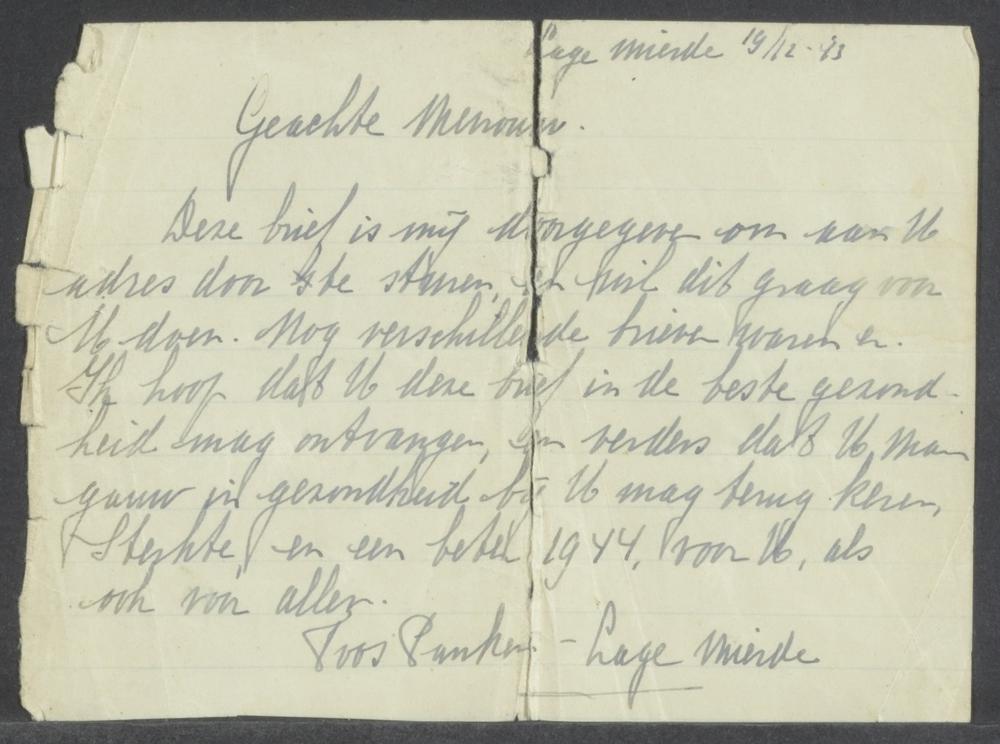 Lage Mierde 19/12-43
Geachte Mevrouw.
Deze brief is mij doorgegeve om aan U
adres door te sturen, en wil dit graag voor
U doen. Nog verschillende brieven waren er.
Ik hoop dat U deze brief in de beste gezond-
heid mag ontvangen, en verders dat U, Man
gauw in gezondheid bij U mag terug keren,
Sterkte, en een beter 1944, voor U, als
ook voor allen.
Toos - Lage Mierde